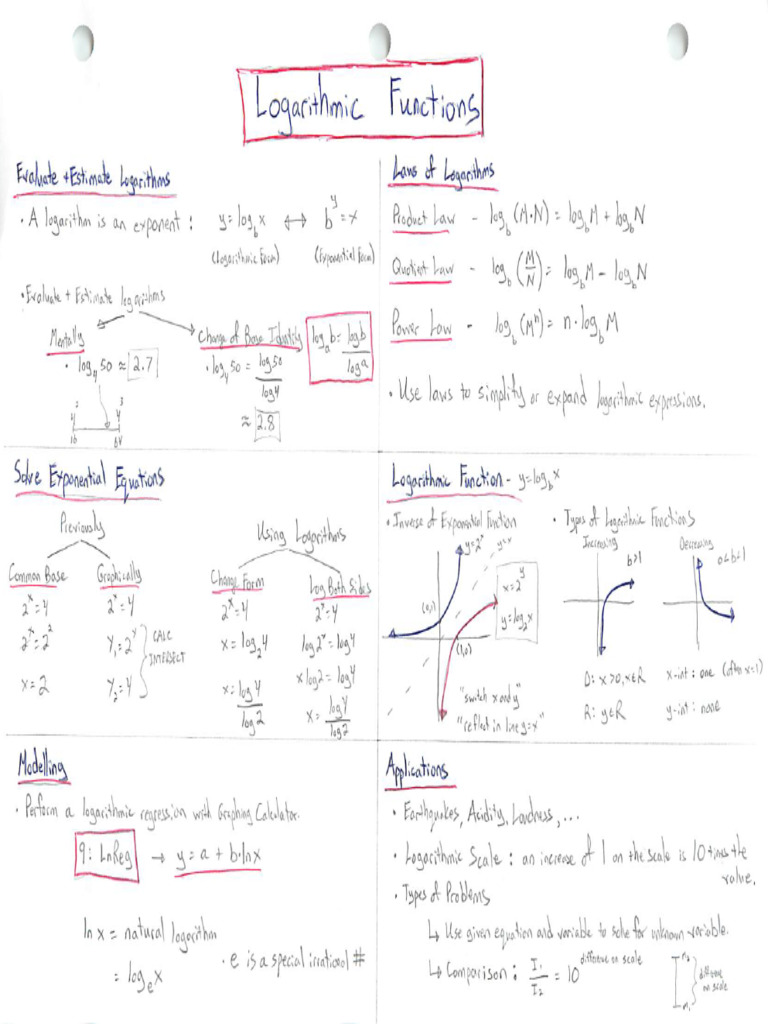 Logarithmic Functions
Evaluate + Estimate Logarithms
• A logarithm is an exponent : y = log_b x ↔ b^y = x
(Logarithmic Form) (Exponential Form)
• Evaluate + Estimate logarithms
Mentally
• log_4 50 ≈ 2.7
4^2 4^3
16 64
Change of Base Identity
log_a b = log b / log a
• log_4 50 = log 50 / log 4
≈ 2.8
Laws of Logarithms
Product Law - log_b (M·N) = log_b M + log_b N
Quotient Law - log_b (M/N) = log_b M - log_b N
Power Law - log_b (M^n) = n·log_b M
• Use laws to simplify or expand logarithmic expressions.
Solve Exponential Equations
Previously
Common Base
2^x = 4
2^x = 2^2
x = 2
Graphically
2^x = 4
Y_1 = 2^x
Y_2 = 4
CALC
INTERSECT
Using Logarithms
Change Form
2^x = 4
x = log_2 4
x = log 4 / log 2
Log Both Sides
2^x = 4
log 2^x = log 4
x log 2 = log 4
x = log 4 / log 2
Logarithmic Function - y = log_b x
• Inverse of Exponential Function
y = 2^x
y = x
(0,1)
(1,0)
x = 2^y
y = log_2 x
"switch x and y"
"reflect in line y = x"
• Types of Logarithmic Functions
Increasing
b > 1
Decreasing
0 < b < 1
D: x > 0, x ∈ R x-int : one (often x = 1)
R: y ∈ R y-int : none
Modelling
• Perform a logarithmic regression with Graphing Calculator.
9: LnReg → y = a + b·ln x
ln x = natural logarithm
= log_e x
• e is a special irrational #
Applications
• Earthquakes, Acidity, Loudness, ...
• Logarithmic Scale : an increase of 1 on the scale is 10 times the
value.
• Types of Problems
↳ Use given equation and variable to solve for unknown variable.
↳ Comparison : I_1 / I_2 = 10^difference on scale
difference
on scale